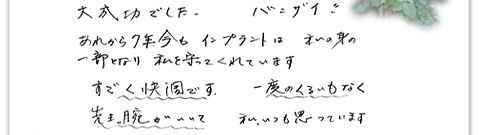 大成功でした. バンザイ!!
あれから7年今も インプラントは 私の身の
一部となり 私を守ってくれています
すごく快調です. 一度のくるいもなく
先生.腕がいいって 私.いつも思っています